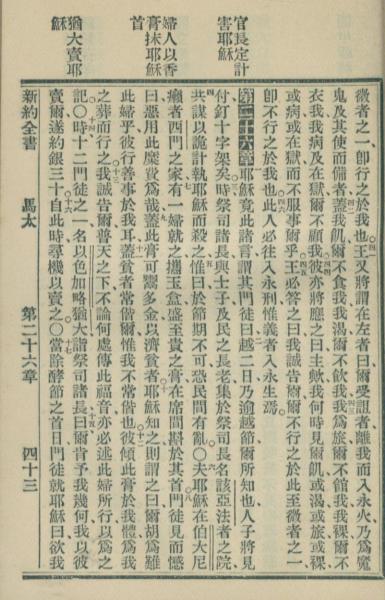 官長定計
害耶穌
婦人以香
膏抹耶穌
首
猶大賣耶
穌
微者之一卽行之於我也王又將謂在左者曰爾受詛者離我而入永火乃爲魔
鬼及其使而備者蓋我飢爾不食我我渴爾不飮我我爲旅爾不館我我裸爾不
衣我我病及在獄爾不顧我彼亦將應之曰主歟我何時見爾飢或渴或旅或裸
或病或在獄而不服事爾乎王必答之曰我誠告爾爾不行之於此至微者之一
卽不行之於我也此人必往入永刑惟義者入永生焉
第二十六章耶穌竟此諸言謂其門徒曰越二日乃逾越節爾所知也人子將見
付釘十字架矣時祭司諸長與士子及民之長老集於祭司長名該亞法者之院
共謀以詭計執耶穌而殺之惟曰於節期不可恐民間有亂〇夫耶穌在伯大尼
癩者西門之家有一婦就之攜玉盒盛至貴之膏在席間斟於其首門徒見而憾
曰惡用此糜費爲哉蓋此膏可鬻多金以濟貧者耶穌知之則謂之曰爾胡爲難
此婦乎彼行善事於我耳蓋貧者常偕爾惟我不常偕也彼傾此膏於我體爲我
之葬而行之我誠告爾普天之下不論何處傳此福音亦必述此婦所行以爲之
記〇時十二門徒之一名以色加畧猶大詣祭司諸長曰爾肯予我幾何我以彼
賣爾遂約銀三十自此時尋機以賣之〇當除酵節之首日門徒就耶穌曰欲我
新約全書 馬太 第二十六章 四十三